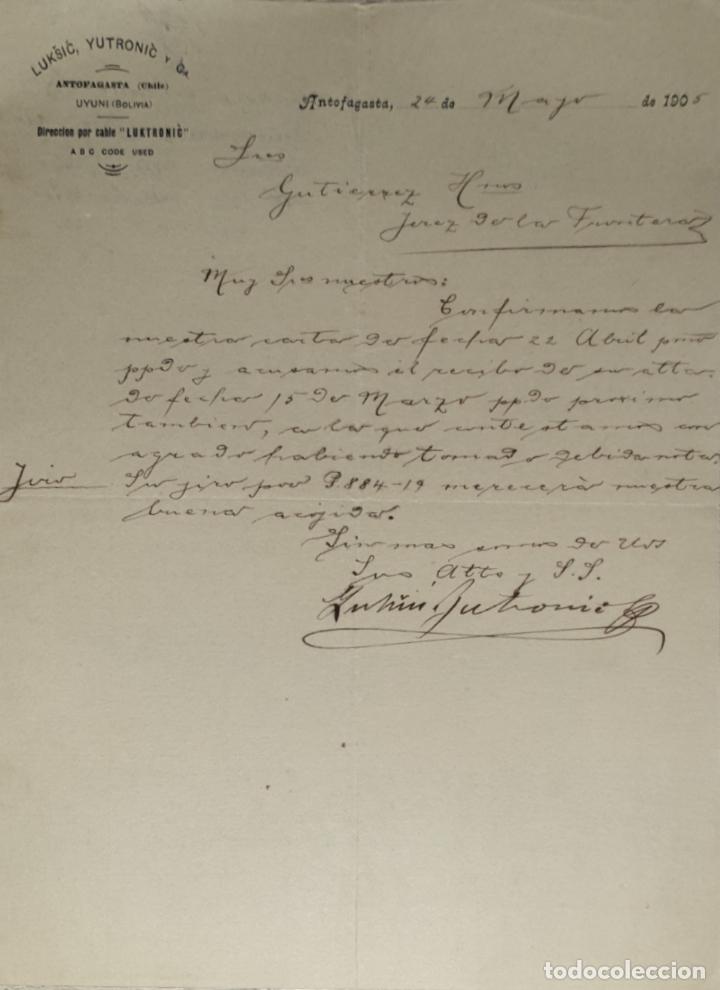 LUKŠIČ, YUTRONIČ Y Ca.
ANTOFAGASTA (Chile)
UYUNI (BOLIVIA)
Direccion por cable "LUKTRONIČ"
A B C CODE USED
Antofagasta, 24 de Mayo de 1905
Sres
Gutierrez Hnos
Jerez de la Frontera
Muy Sres nuestros:
Confirmamos la
nuestra carta de fecha 22 Abril pmo
ppdo y acusamos el recibo de su atta.
de fecha 15 de Marzo ppdo proximo
tambien, a la que contestamos con
agrado habiendo tomado debida nota
Jiro Su jiro por P. 884-19 merecerà nuestra
buena acojida.
Sin mas somos de Uds
Sus Atto y S.S.
Lukšič, Yutronic
todocoleccion
todocoleccion.net